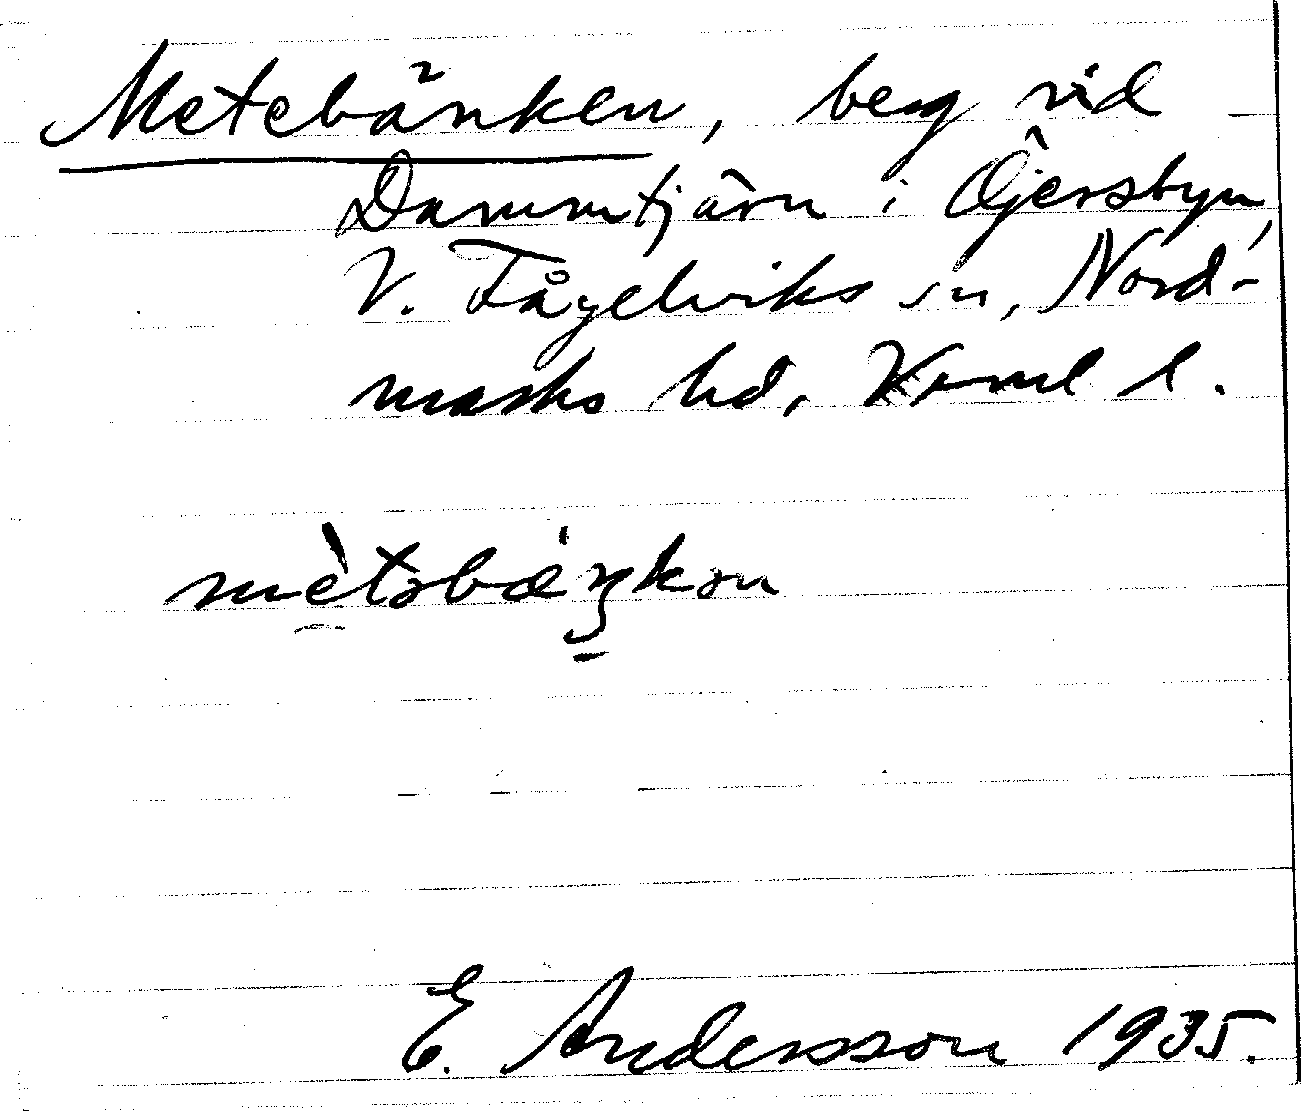 Metebänken, berg vid
Dammtjärn i Öjersbyn,
V. Fågelviks sn, Nord-
marks hd, Värml l.
mètəbæ̀ŋkən
E. Andersson 1935.